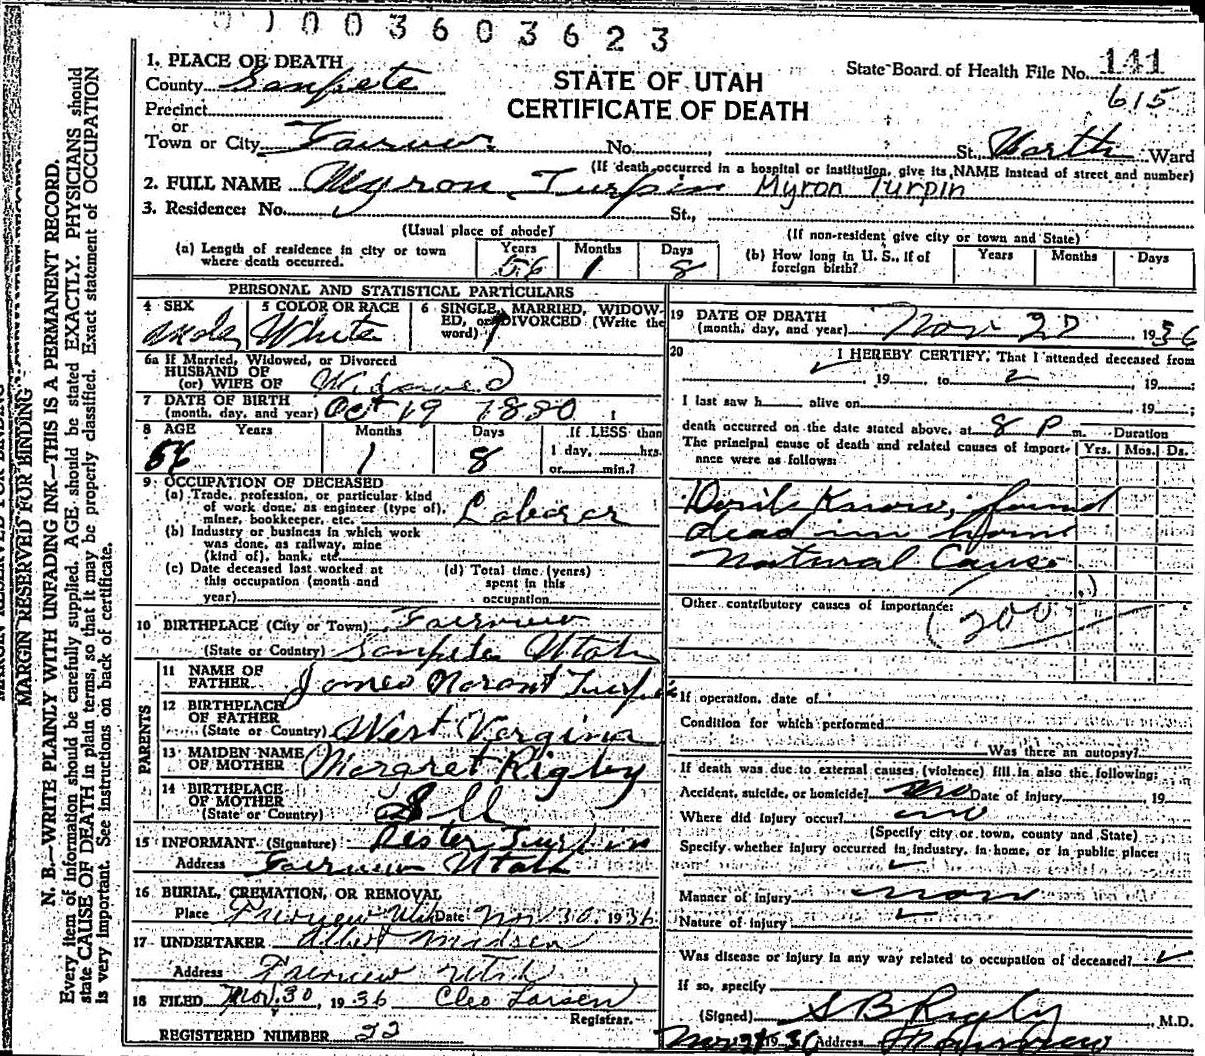 003603623
1. PLACE OF DEATH
County Sanpete
STATE OF UTAH
CERTIFICATE OF DEATH
State Board of Health File No. 141
615
Precinct
or
Town or City Fairview No. St. North Ward
(If death occurred in a hospital or institution, give its NAME instead of street and number)
2. FULL NAME Myron Turpin Myron Turpin
3. Residence: No. St.,
(Usual place of abode) (If non-resident give city or town and State)
(a) Length of residence in city or town where death occurred. Years 56 Months 1 Days 8
(b) How long in U. S., if of foreign birth? Years Months Days
PERSONAL AND STATISTICAL PARTICULARS
4 SEX Male
5 COLOR OR RACE White
6 SINGLE, MARRIED, WIDOWED, or DIVORCED (Write the word)
6a If Married, Widowed, or Divorced
HUSBAND OF
(or) WIFE OF Widowed
7 DATE OF BIRTH
(month, day, and year) Oct 19 1880
8 AGE Years Months Days If LESS than
56 1 8 1 day, hrs.
or min.?
9 OCCUPATION OF DECEASED
(a) Trade, profession, or particular kind
of work done, as engineer (type of),
miner, bookkeeper, etc. Laborer
(b) Industry or business in which work
was done, as railway, mine
(kind of), bank, etc.
(c) Date deceased last worked at
this occupation (month and
year)
(d) Total time (years)
spent in this
occupation
10 BIRTHPLACE (City or Town) Fairview
(State or Country) Sanpete Utah
PARENTS
11 NAME OF
FATHER James Turpin
12 BIRTHPLACE
OF FATHER
(State or Country) West Verginia
13 MAIDEN NAME
OF MOTHER Margaret Rigby
14 BIRTHPLACE
OF MOTHER
(State or Country)
15 INFORMANT (Signature) Lester Turpin
Address Fairview Utah
16 BURIAL, CREMATION, OR REMOVAL
Place Fairview Utah Date Nov 30 1936
17 UNDERTAKER Albert Madsen
Address Fairview Utah
18 FILED Nov. 30, 1936 Cleo Larsen
Registrar.
REGISTERED NUMBER 22
19 DATE OF DEATH
(month, day, and year) Nov 27 1936
20 I HEREBY CERTIFY, That I attended deceased from
, 19 to , 19 ;
I last saw h alive on , 19 ;
death occurred on the date stated above, at 8 P m. Duration
The principal cause of death and related causes of importance were as follows: Yrs. Mos. Ds.
Don't Know, found
dead in home
Natural Cause
Other contributory causes of importance:
(200)
If operation, date of
Condition for which performed
Was there an autopsy?
If death was due to external causes (violence) fill in also the following:
Accident, suicide, or homicide? no Date of injury , 19
Where did injury occur? no
(Specify city or town, county and State)
Specify whether injury occurred in industry, in home, or in public place:
Manner of injury none
Nature of injury
Was disease or injury in any way related to occupation of deceased?
If so, specify
(Signed) S B Rigby , M.D.
1936 Address Fairview
MARGIN RESERVED FOR BINDING
N. B.—WRITE PLAINLY WITH UNFADING INK—THIS IS A PERMANENT RECORD.
Every item of information should be carefully supplied. AGE should be stated EXACTLY. PHYSICIANS should
state CAUSE OF DEATH in plain terms, so that it may be properly classified. Exact statement of OCCUPATION
is very important. See instructions on back of certificate.